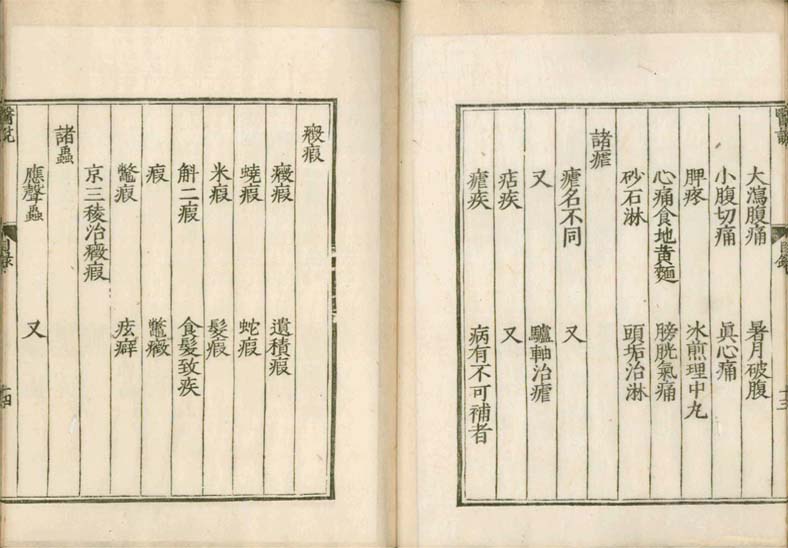 醫說 目録 十三
大瀉腹痛 暑月破腹
小腹切痛 眞心痛
脾疼 冰煎理中丸
心痛食地黄麵 膀胱氣痛
砂石淋 頭垢治淋
諸瘧
瘧名不同 又
又 驢軸治瘧
痁疾 又
瘧疾 病有不可補者
癥瘕
癥瘕 遺積瘕
蟯瘕 蛇瘕
米瘕 髮瘕
斛二瘕 食髮致疾
瘕 鱉癥
鱉瘕 痃癖
京三稜治癥瘕
諸蟲
應聲蟲 又
醫說 目録 十四